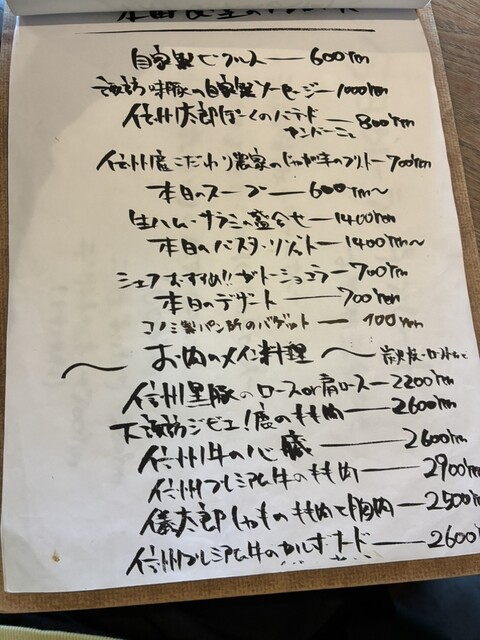 自家製ピクルス — 600yen
諏訪味豚の自家製ソーセージ — 1000yen
信州太郎ぽーくのパテド — 800yen
カンパーニュ
信州産こだわり農家のじゃが芋のフリット — 700yen
本日のスープ — 600yen〜
生ハム・サラミの盛合せ — 1400yen
本日のパスタ・リゾット — 1400yen〜
シェフおすすめ!! ガトーショコラ — 700yen
本日のデザート — 700yen
コノミ製パン所のバゲット — 100yen
〜 お肉のメイン料理 〜
信州黒豚のロースor肩ロース — 2200yen
下諏訪ジビエ!鹿のもも肉 — 2600yen
信州牛の心臓 — 2600yen
信州プレミアム牛のもも肉 — 2900yen
儀太郎しゃものもも肉と胸肉 — 2500yen
信州プレミアム牛の — 2600yen